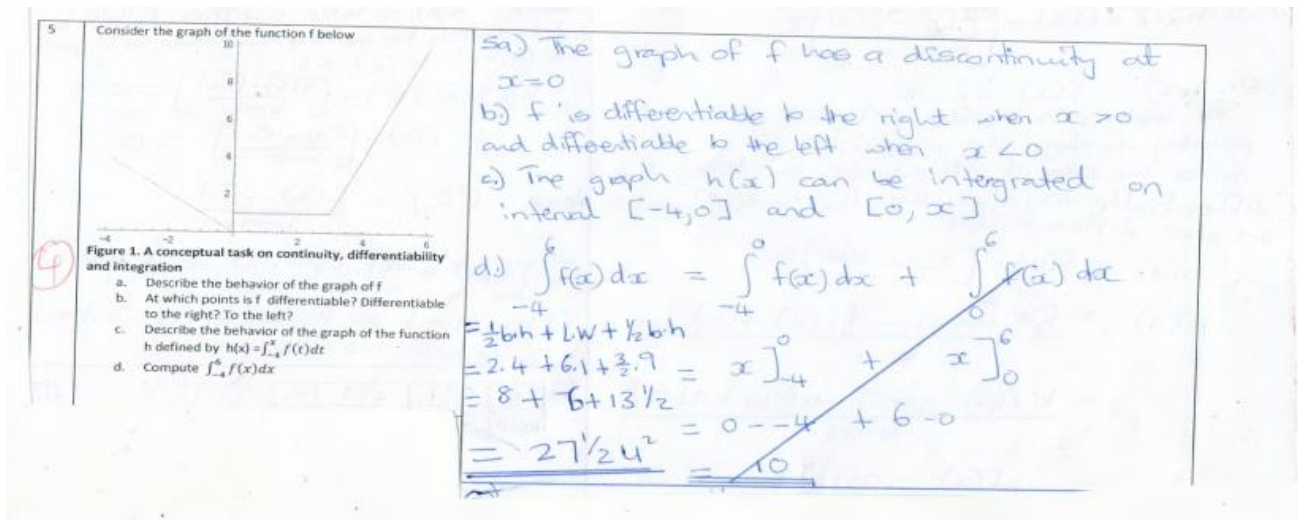 5
Consider the graph of the function f below
10
8
6
4
2
-4 -2 2 4 6
Figure 1. A conceptual task on continuity, differentiability
and integration
a. Describe the behavior of the graph of f
b. At which points is f differentiable? Differentiable
to the right? To the left?
c. Describe the behavior of the graph of the function
h defined by h(x) =∫₋₄ˣ f(t)dt
d. Compute ∫₋₄⁶ f(x)dx
4
5a) The graph of f has a discontinuity at
x=0
b.) f is differentiable to the right when x >0
and differentiable to the left when x <0
c.) The graph h(x) can be intergrated on
interval [-4,0] and [0, x]
d.) ∫₋₄⁶ f(x) dx = ∫₋₄⁰ f(x) dx + ∫₀⁶ f(x) dx
= ½b.h + LW + ½b.h
= 2.4 + 6.1 + 3/2.9 = x]₋₄⁰ + x]₀⁶
= 8 + 6 + 13 ½ = 0 - -4 + 6 -0
= 27 ½ u² = 10